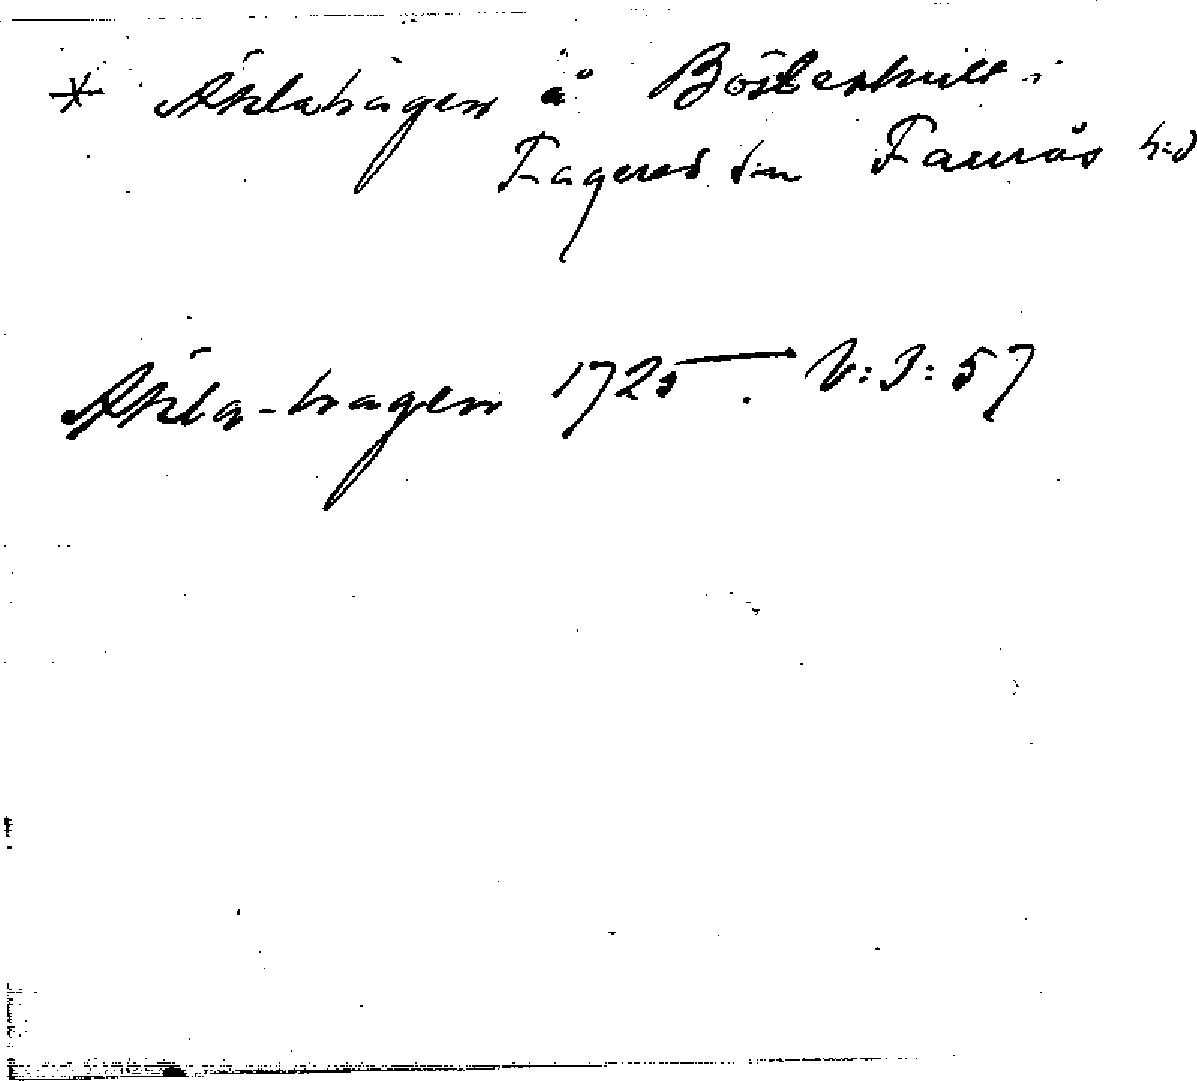 * Äklahagen å Bösterhult i
Fagered s:n Faurås h:d
Äkla-hagen 1725. V:I:57